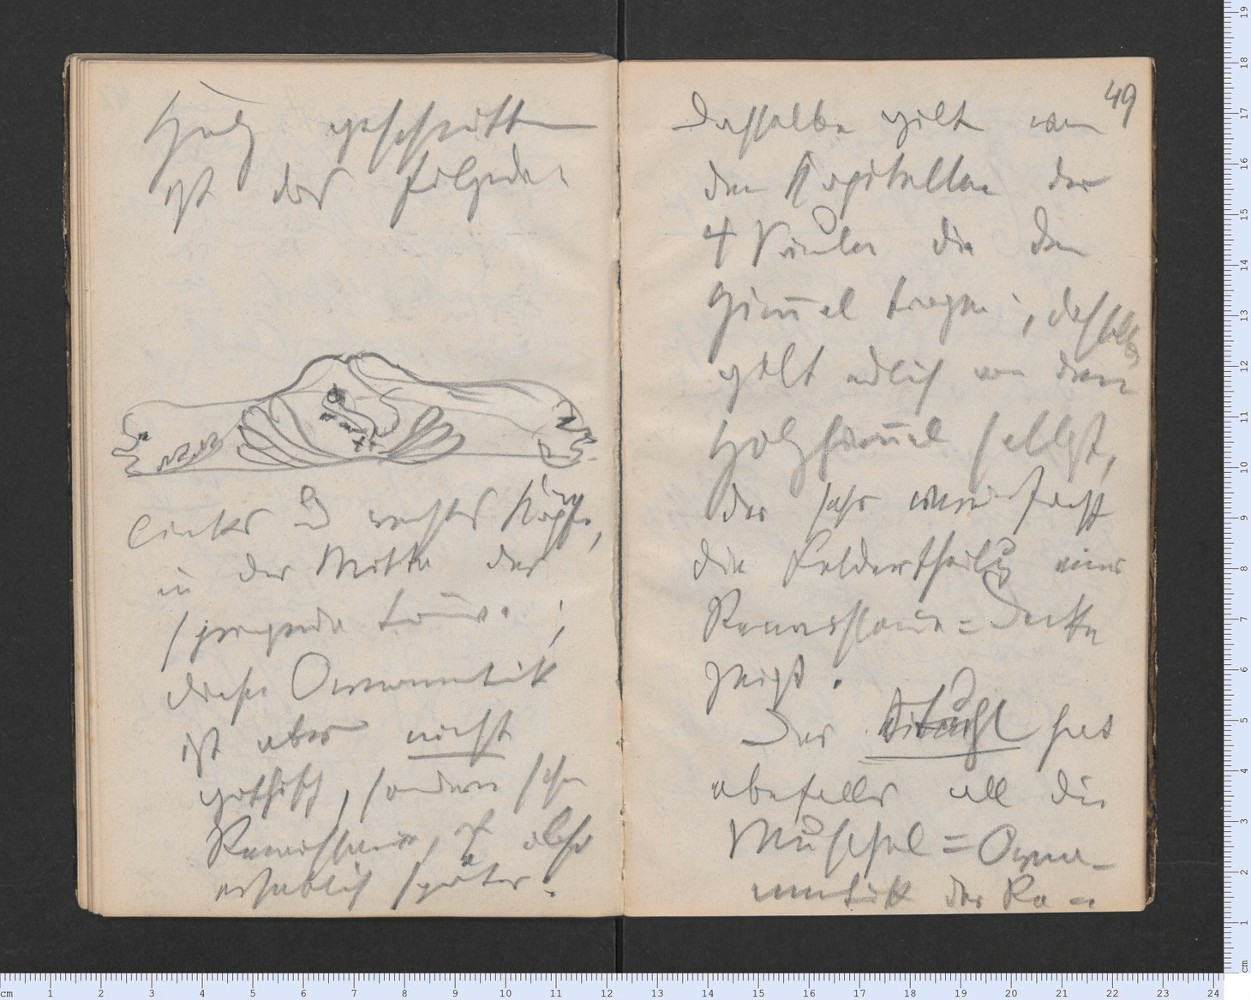 Holz geschnitten
ist das folgende:
links u rechts Köpfe,
in der Mitte der
springende ;
diese Ornamentik
ist aber nicht
gothisch, sondern schon
Renaissance, ist also
erheblich später.
49
Dasselbe gilt von
den Kapitellen der
4 Säulen die den
Himmel tragen; dasselbe
gilt endlich von dem
Holzhimmel selbst,
der sehr
die Felderтheilug einer
Renaissance=Decke
zeigt.
Der Stuhl hat
ebenfalls all die
Muschel=Orna-
mentik der Re=